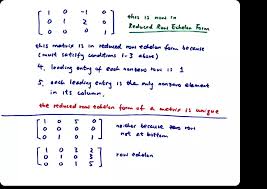 [ 1 0 -1 0
0 1 2 0
0 0 0 1 ]
this is now in
Reduced Row Echelon Form
this matrix is in reduced row echelon form because
(must satisfy conditions 1-3 above)
4. leading entry of each nonzero row is 1
5. each leading entry is the only nonzero element
in its column.
the reduced row echelon form of a matrix is unique
[ 1 0 5 0
0 0 0 0
0 1 0 1 ]
neither because zero row
not at bottom
[ 1 0 3 2
0 1 0 3
0 0 1 5 ]
row echelon